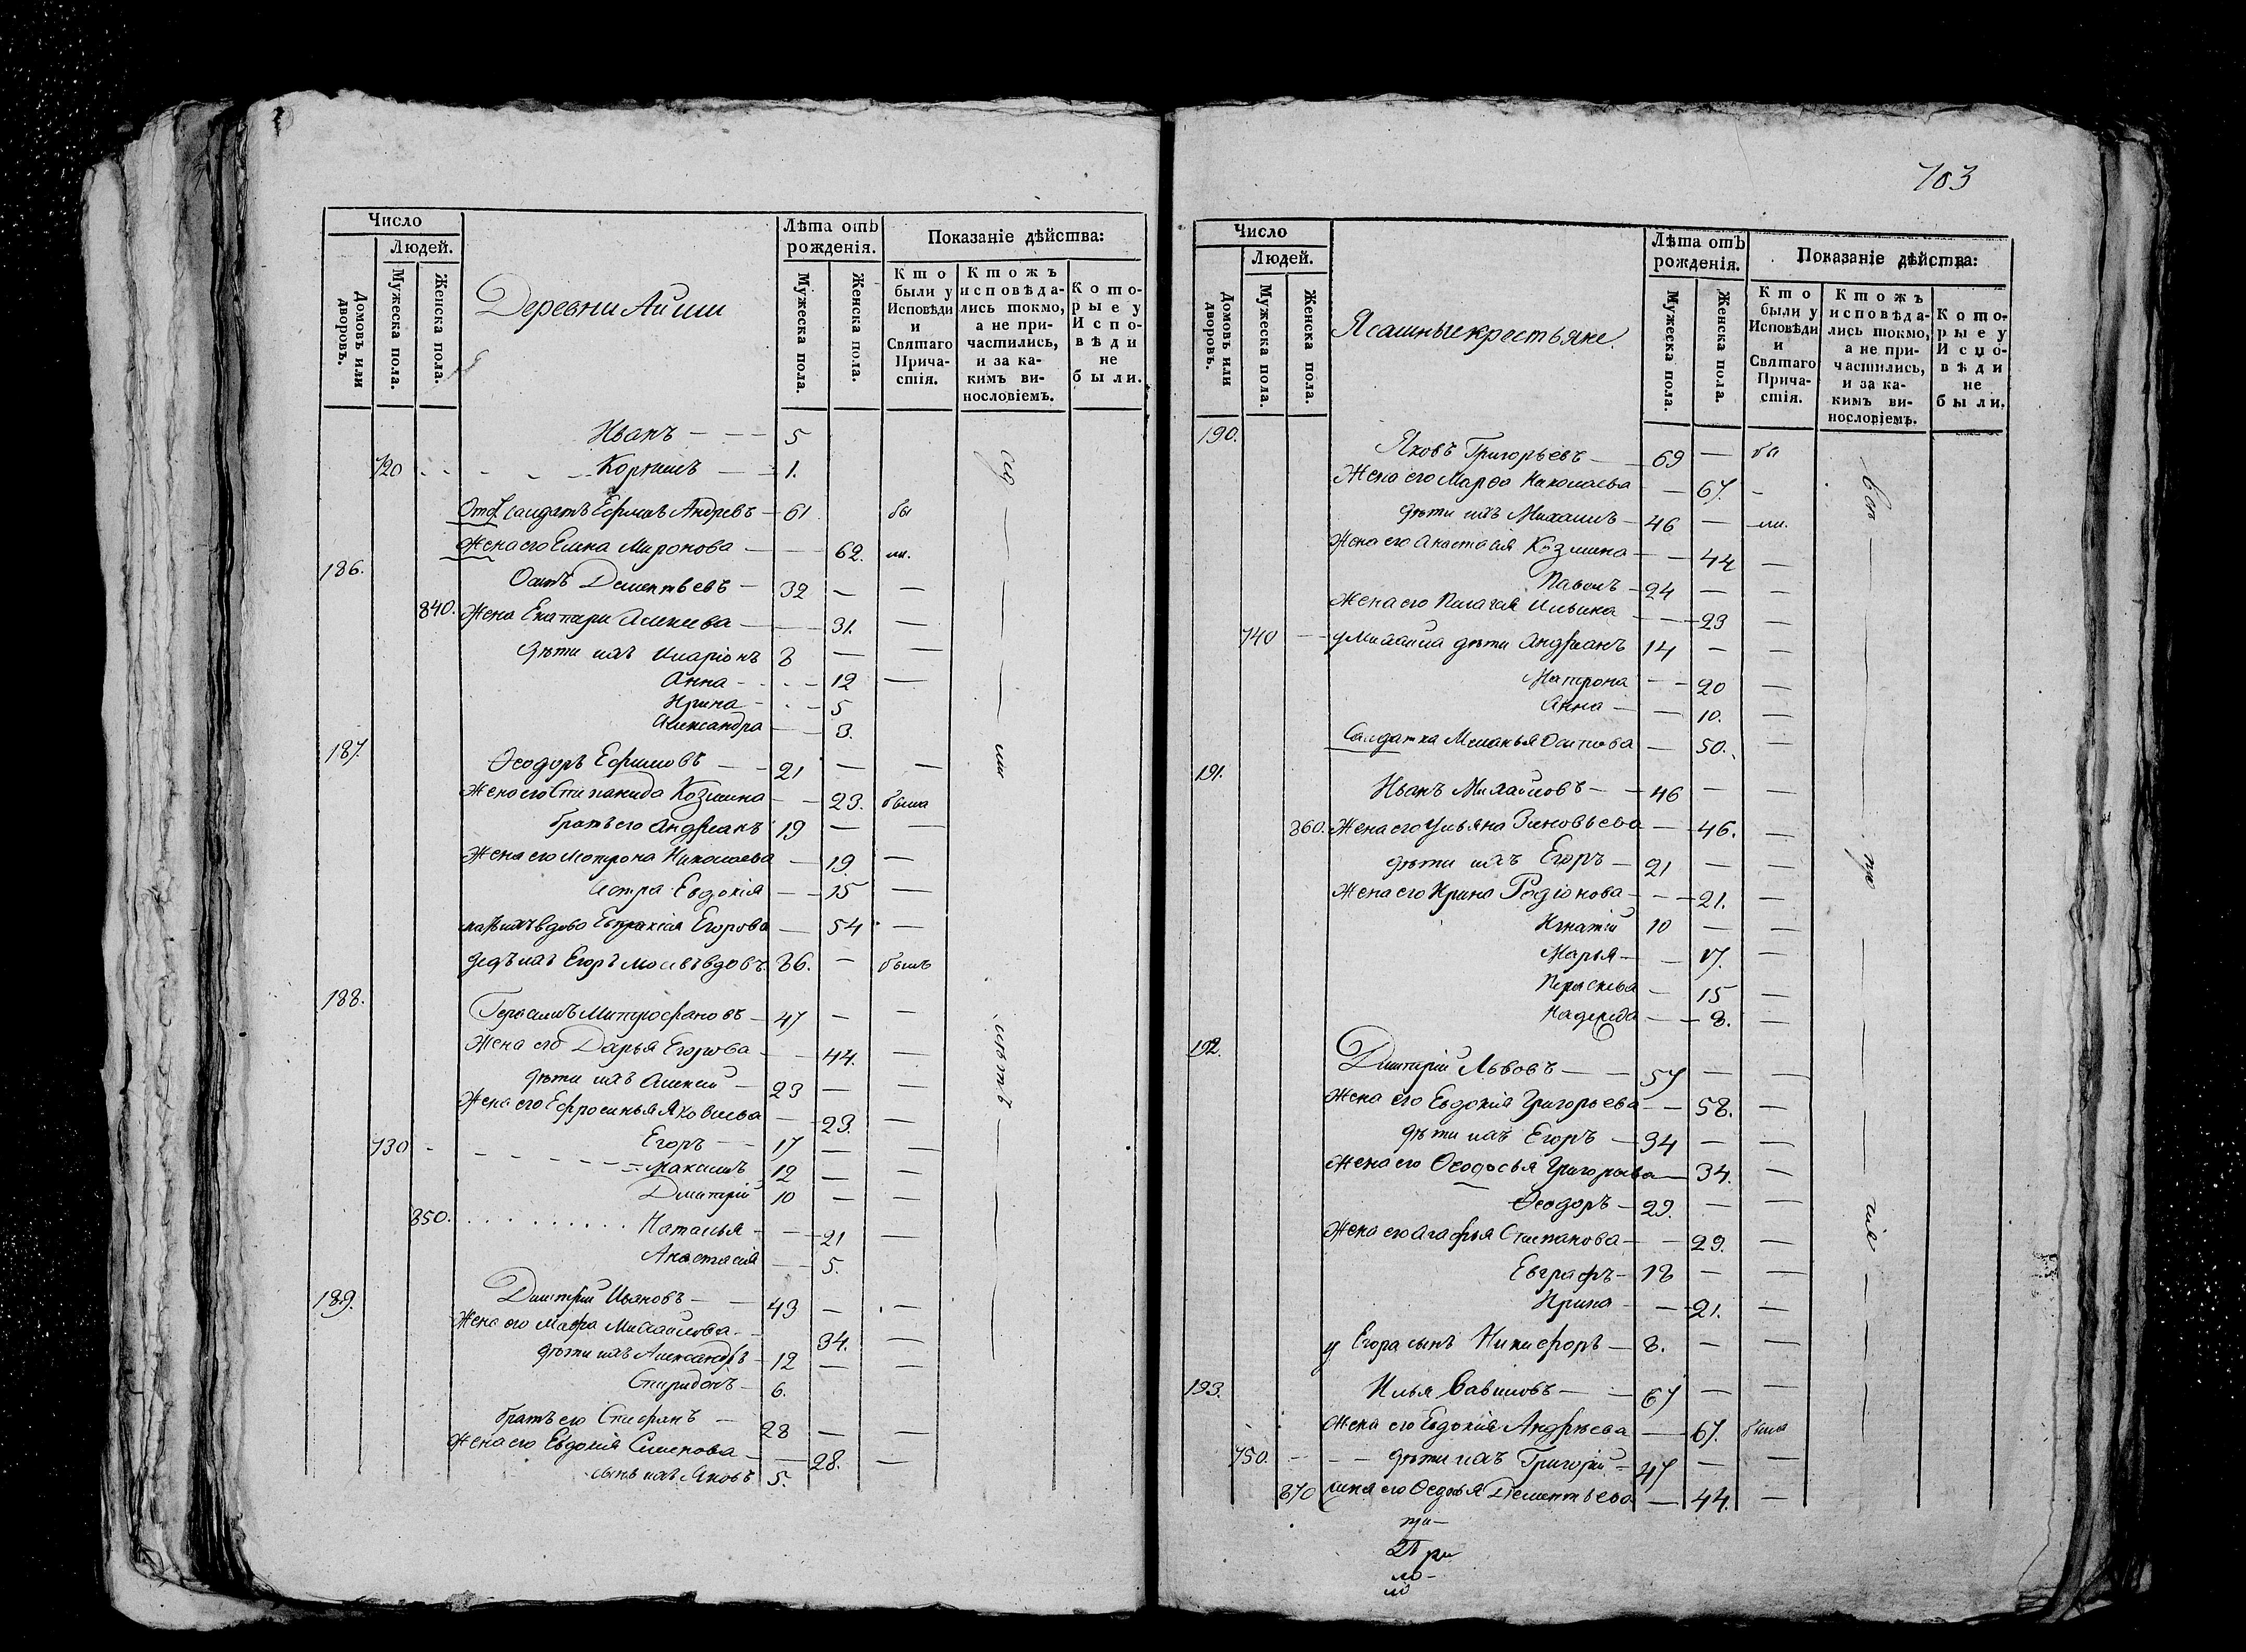 703
Число
Людей.
Домовъ или дворовъ.
Мужеска пола.
Женска пола.
Деревни Айши
Лѣта отъ рожденія.
Мужеска пола.
Женска пола.
Показаніе дѣйства:
Кто были у Исповѣди и Святаго Причастія.
Ктожъ исповѣдались токмо, а не причастились, и за какимъ винословіемъ.
Которые у Исповѣди не были.
Иванъ — 5
720 Корнилъ — 1.
салдатъ Ефимъ Андревъ — 61 бы
Жена его Елена Миронова — 62. ли.
186.
Осипъ Дементьевъ — 32 — —
840. Жена Екатери Алексеева — 31. —
дѣти ихъ Иларіонъ 8 — —
Анна — 12 —
Ирина — 5
Александра — 3.
187.
Ѳеодоръ Ефимовъ — 21 — —
Жена его Степанида Козмина — 23. была
братъ его Андреанъ 19 — —
Жена его Матрона Николаева — 19. —
сестра Евдокія — 15 —
вдова Евпраксія Егорова — 54 —
дедъ ихъ Егоръ вдовъ. 86. — былъ
188.
Герасимъ Митрофановъ — 47 — —
Жена его Дарья Егорова — 44. —
дѣти ихъ Алексей — 23 — —
Жена его Ефросинья Яковлева — 23. —
730 Егоръ — 17 — —
Максимъ 12 — —
Дмитрій 10 — —
850. Наталья — 21 —
Анастасія — 5.
189.
Дмитрій Ивановъ — 43 — —
Жена его Марфа Михайлова — 34. —
дѣти ихъ Александръ — 12 — —
Спиридонъ — 6.
братъ его Стефанъ — 28 — —
Жена его Евдокія Семенова — 28. —
сынъ ихъ Яковъ 5.
Число
Людей.
Домовъ или дворовъ.
Мужеска пола.
Женска пола.
Ясашные крестьяне.
Лѣта отъ рожденія.
Мужеска пола.
Женска пола.
Показаніе дѣйства:
Кто были у Исповѣди и Святаго Причастія.
Ктожъ исповѣдались токмо, а не причастились, и за какимъ винословіемъ.
Которые у Исповѣди не были.
190.
Яковъ Григорьевъ — 69 — бы
Жена его Марѳа Николаева — 67. -
дѣти ихъ Михаилъ — 46 — ли.
Жена его Анастасія Козмина — 44 —
Павелъ — 24 — —
Жена его Пелагея Ильина — 23 —
740 у Михаила дѣти Андреанъ 14 — —
Матрона — 20 —
Анна — 10. —
Салдатка Меланья Осипова — 50. —
191.
Иванъ Михайловъ — 46 — —
860. Жена его Ульяна Зиновьева — 46. —
дѣти ихъ Егоръ — 21 — —
Жена его Ирина Родіонова — 21. —
Игнатій 10 — —
Марья — 17. —
Парасковья — 15 —
Надежда — 8. —
192.
Дмитрій Львовъ — 57 — —
Жена его Евдокія Григорьева — 58. —
дѣти ихъ Егоръ — 34 — —
Жена его Ѳеодосья Григорьева — 34. —
Ѳеодоръ — 29. — —
Жена его Агафья Степанова — 29. —
Евграфъ — 18 — —
Ирина — 21. —
у Егора сынъ Никифоръ — 8. — —
193.
Илья Вавиловъ — 67 — —
Жена его Евдокія Андрѣева — 67. была
750. дѣти ихъ Григорій — 47 — —
870 Жена его Ѳедосья Дементьева — 44. —